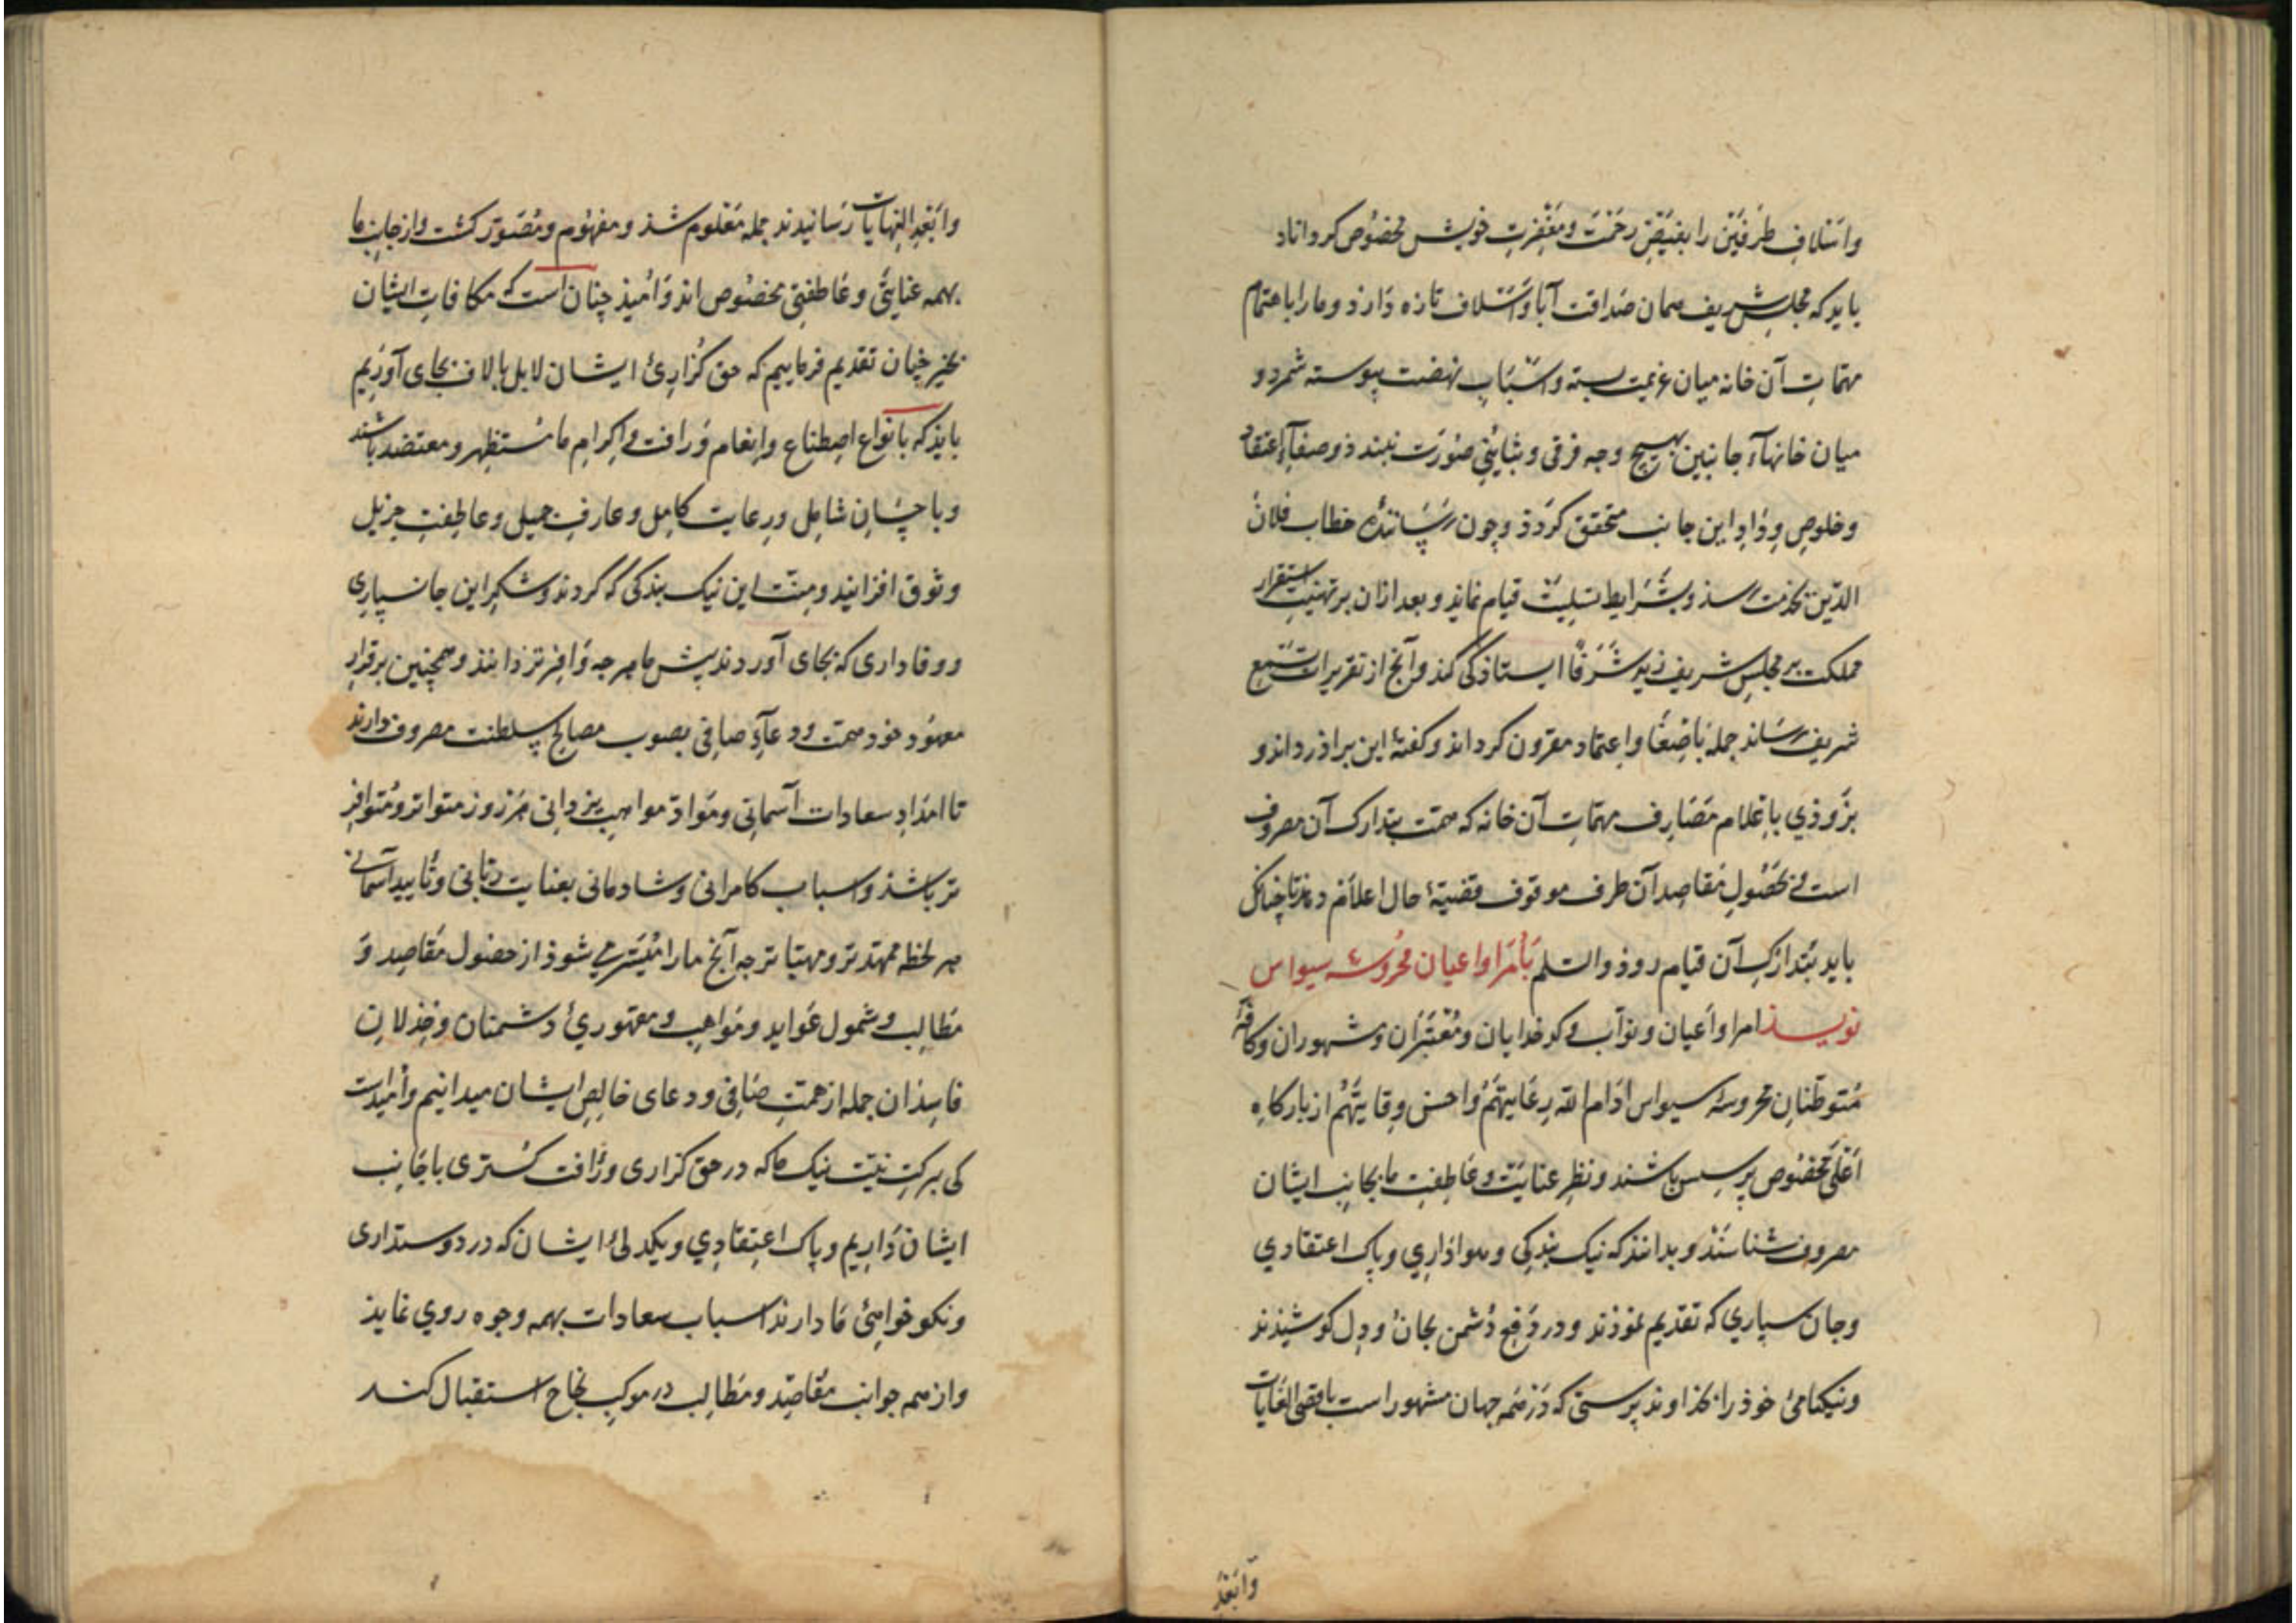 واسلاف طرفین را بفیض رحمت و مغفرت خویش مخصوص کرداناد
باید که مجلس شریف همان صداقت آبا و اسلاف تازه دارد و ما را باهتمام
مهمات آن خانه میان عزیمت بسته و اسباب نهضت پیوسته شمرد و
میان خانهآء جانبین بهیچ وجه فرقی و تباینی صورت نبندد و صفآء اعتقاد
و خلوص وداد این جانب متحقق کردد و چون رسانندهٔ خطاب فلان
الدین بخدمت رسد و بشرایط تسلیت قیام نماید و بعد ازان بر تهنیت استقرار
مملکت بر مجلس شریف زید شرفا ایستاذگی کند و آنچ از تقریرات بسمع
شریف رساند جمله باصغا و اعتماد مقرون کرداند و کفتهٔ این براذر داند و
بزوذی باعلام مصارف مهمات آن خانه که همت بتدارک آن مصروف
است فی بحصول مقاصد آن طرف موقوف قضیهٔ حال اعلام دهذ تا چنانک
باید بتدارک آن قیام روذ والسلم بامرا و اعیان محروسهٔ سیواس
نویسذ امرا و اعیان و نواب و کدخدایان و معتبران و مشهوران و کافهٔ
متوطنان محروسهٔ سیواس ادام الله رعایتهم و احسن وقایتهم از بارکاه
اعلی مخصوص پرسش باشند و نظر عنایت و عاطفت ما بجانب ایشان
مصروف شناسند و بدانند که نیک بندکی و هواذاری و پاک اعتقادی
و جان سپاری که تقدیم نموذند و در دفع دشمن بجان و دل کوشیذند
و نیکنامی خوذ را بخذاوند پرستی که در همه جهان مشهور است باقصی الغایات
وابعد
وابعد النهایات رسانیدند جمله معلوم شذ و مفهوم و مصور کشت و از جانب ما
بهمه عنایتی و عاطفتی مخصوص اند و امیذ چنان است که مکافات ایشان
بخیر چنان تقدیم فرماییم که حق گزاری ایشان لابل بالاف بجای آوریم
بایذ که بانواع اصطناع و انعام و رافت و اکرام ما مستظهر و معتضد باشند
و باحسان شامل و رعایت کامل و عارفت جمیل و عاطفت جزیل
وثوق افزایند و منت این نیک بندکی که کردند و شکر این جان سپاری
و وفاداری که بجای آوردند پیش ما هرچه وافرتر دانند و همچنین برقرار
معهود خود همت و دعآء صافی بصوب مصالح سلطنت مصروف دارند
تا امداد سعادات آسمانی و مواد مواهب یزدانی هر روز متواتر و متوافر
تر باشذ و اسباب کامرانی و شادمانی بعنایت ربانی و تایید آسمانی
هر لحظه ممهدتر و مهیاتر چه آنچ ما را میسر می شوذ از حصول مقاصد و
مطالب و شمول عواید و مواهب و مقهوری دشمنان و خذلان
فاسدان جمله از همت صافی و دعای خالص ایشان میدانیم و امیدست
کی برکت نیت نیک ما که در حق گزاری و رافت گستری با جانب
ایشان داریم و پاک اعتقادی و یکدلی ایشان که در دوستداری
و نکوخواهی ما دارند اسباب سعادات بهمه وجوه روی نماید
و از همه جوانب مقاصد و مطالب در موکب نجاح استقبال کند